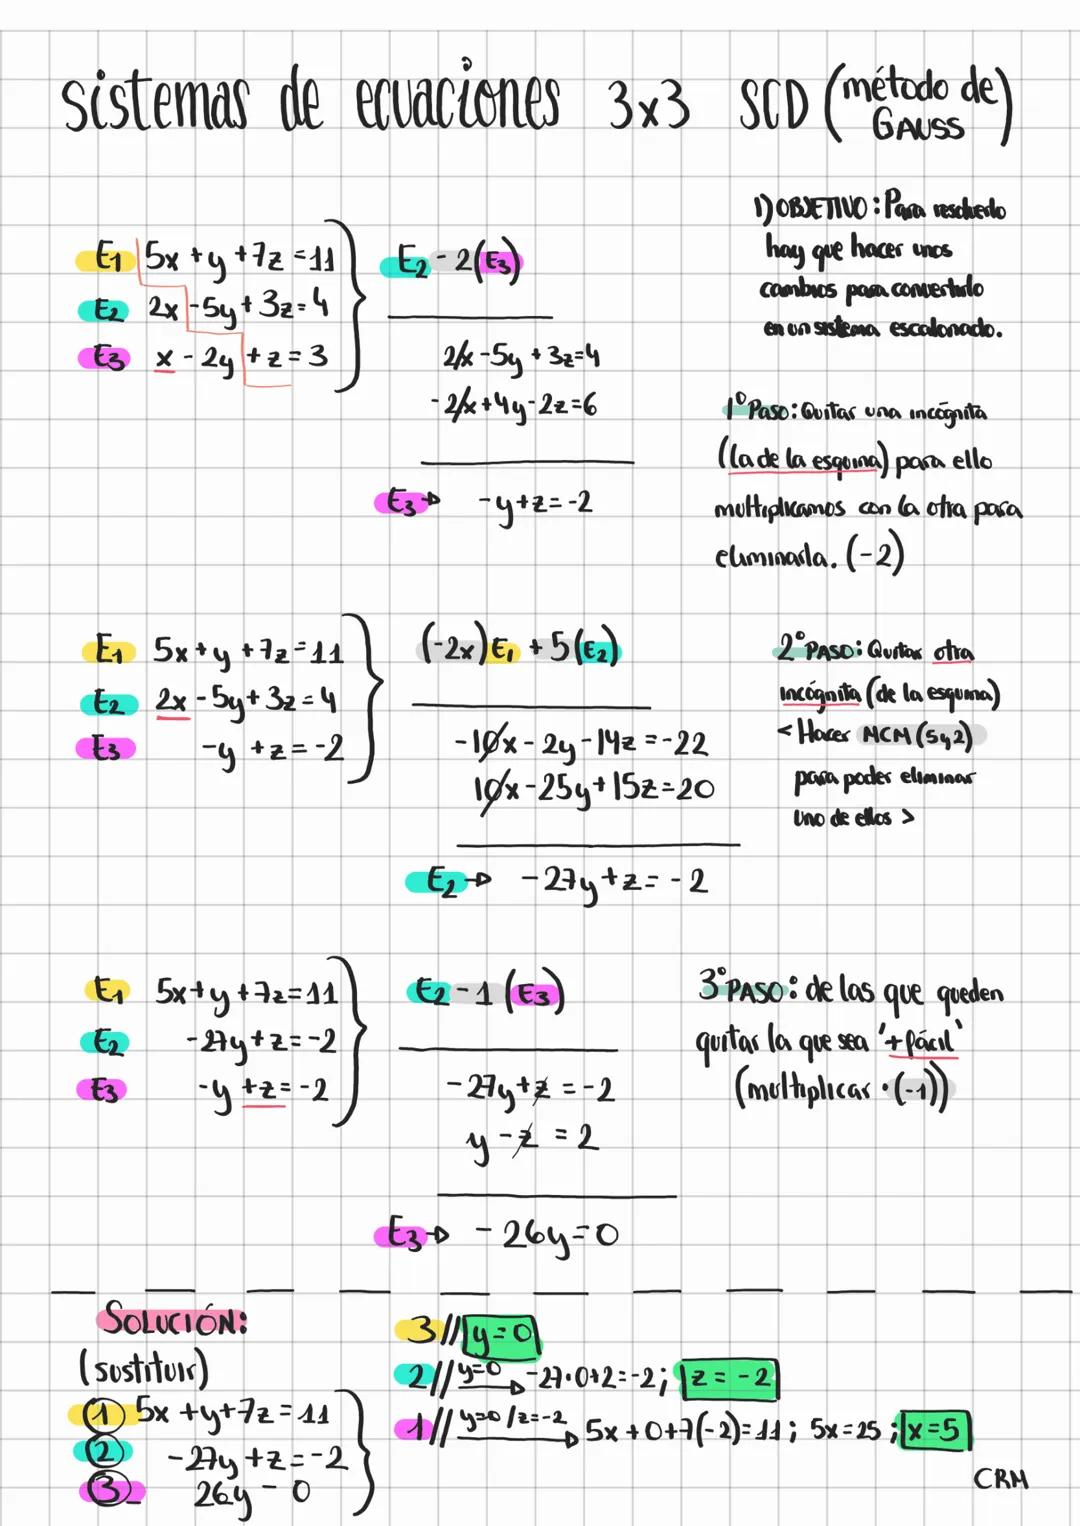 sistemas de ecuaciones 3x3 SCD (método de GAUSS)
E1 5x + y + 7z = 11
E2 2x - 5y + 3z = 4
E3 x - 2y + z = 3
E2 - 2(E3)
2x - 5y + 3z = 4
- 2x + 4y - 2z = 6
E3 → - y + z = -2
1) OBJETIVO: Para resolverlo
hay que hacer unos
cambios para convertirlo
en un sistema escalonado.
1º Paso: Quitar una incógnita
(la de la esquina) para ello
multiplicamos con la otra para
eliminarla. (-2)
E1 5x + y + 7z = 11
E2 2x - 5y + 3z = 4
E3 -y + z = -2
(-2x) E1 + 5(E2)
- 10x - 2y - 14z = -22
10x - 25y + 15z = 20
E2 → - 27y + z = - 2
2º PASO: Quitar otra
incógnita (de la esquina)
< Hacer MCM (5 y 2)
para poder eliminar
uno de ellos >
E1 5x + y + 7z = 11
E2 - 27y + z = -2
E3 - y + z = -2
E2 - 1 (E3)
- 27y + z = -2
y - z = 2
E3 → - 26y = 0
3º PASO: de las que queden
quitar la que sea '+fácil'
(multiplicar ·(-1))
SOLUCIÓN:
(sustituir)
① 5x + y + 7z = 11
② - 27y + z = -2
③ 26y - 0
3// y = 0
2// y=0 → -27·0+2=-2; z = -2
1// y=0 / z=-2 → 5x + 0 + 7(-2) = 11; 5x = 25; x = 5
CRM